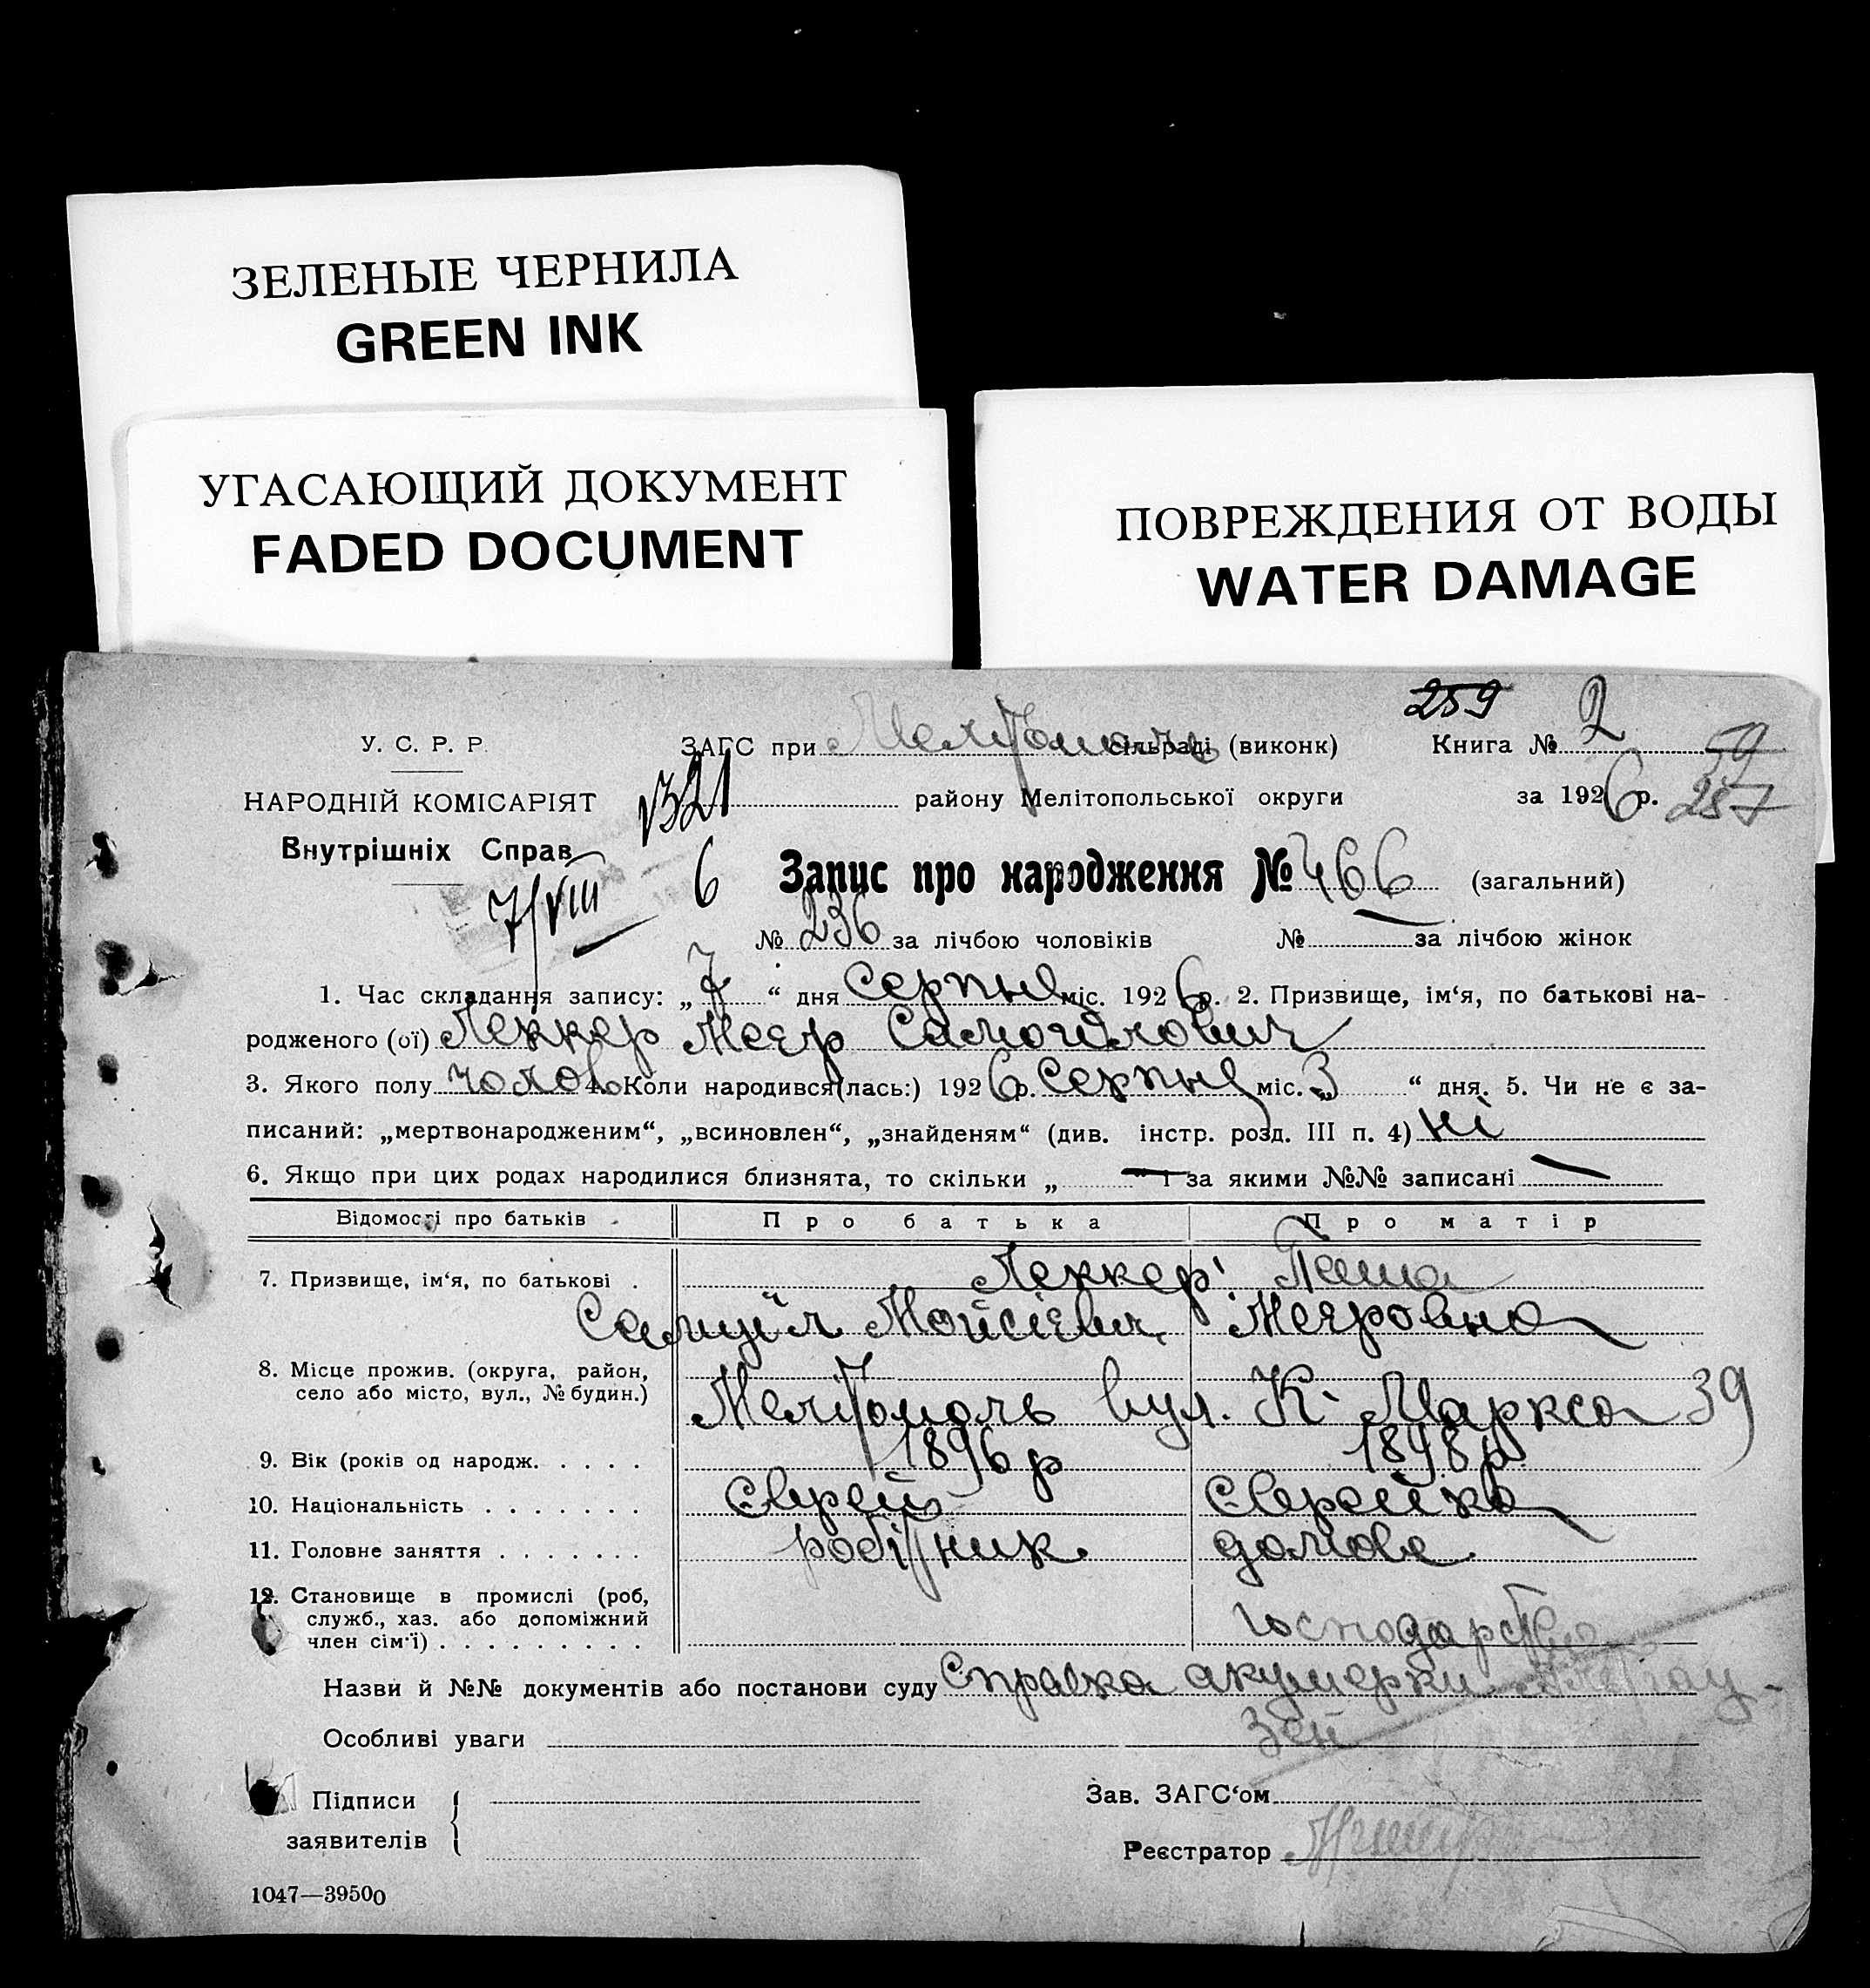 ЗЕЛЕНЫЕ ЧЕРНИЛА
GREEN INK
УГАСАЮЩИЙ ДОКУМЕНТ
FADED DOCUMENT
ПОВРЕЖДЕНИЯ ОТ ВОДЫ
WATER DAMAGE
259
У. С. Р. Р.
ЗАГС при сільраді (виконк) Книга № 2 59
НАРОДНІЙ КОМІСАРІЯТ
321 району Мелітопольської округи за 1926 р. 257
Внутрішніх Справ
7/VIII 6
Запис про народження № 466 (загальний)
№ 236 за лічбою чоловіків № за лічбою жінок
1. Час складання запису: „7“ дня серпня міс. 1926 р. 2. Призвище, ім‘я, по батькові на-
родженого (ої) Леккер Меєр Самойлович
3. Якого полу чолов 4. Коли народився(лась:) 1926 р. серпня міс. „3“ дня. 5. Чи не є за-
писаний: „мертвонародженим“, „всиновлен“, „знайденям“ (див. інстр. розд. III п. 4) ні
6. Якщо при цих родах народилися близнята, то скільки „ — “ і за якими №№ записані —
Відомості про батьків Про батька Про матір
7. Призвище, ім‘я, по батькові . Леккер Песша
Самуїл Мойсієвич Меєровна
8. Місце прожив. (округа, район,
село або місто, вул., № будин.) Мелітополь вул. К. Маркса 39
9. Вік (років од народж. . . . . 1896 р 1898 р.
10. Національність . . . . . . . Єврей Єврейка
11. Головне заняття . . . . . . . робітник домове
12. Становище в промислі (роб,
служб., хаз. або допоміжний
член сім‘ї) . . . . . . . . . господарство
Назви й №№ документів або постанови суду Справка акушерки
Особливі уваги зен
Підписи
заявителів
Зав. ЗАГС‘ом
Реєстратор
1047—39500